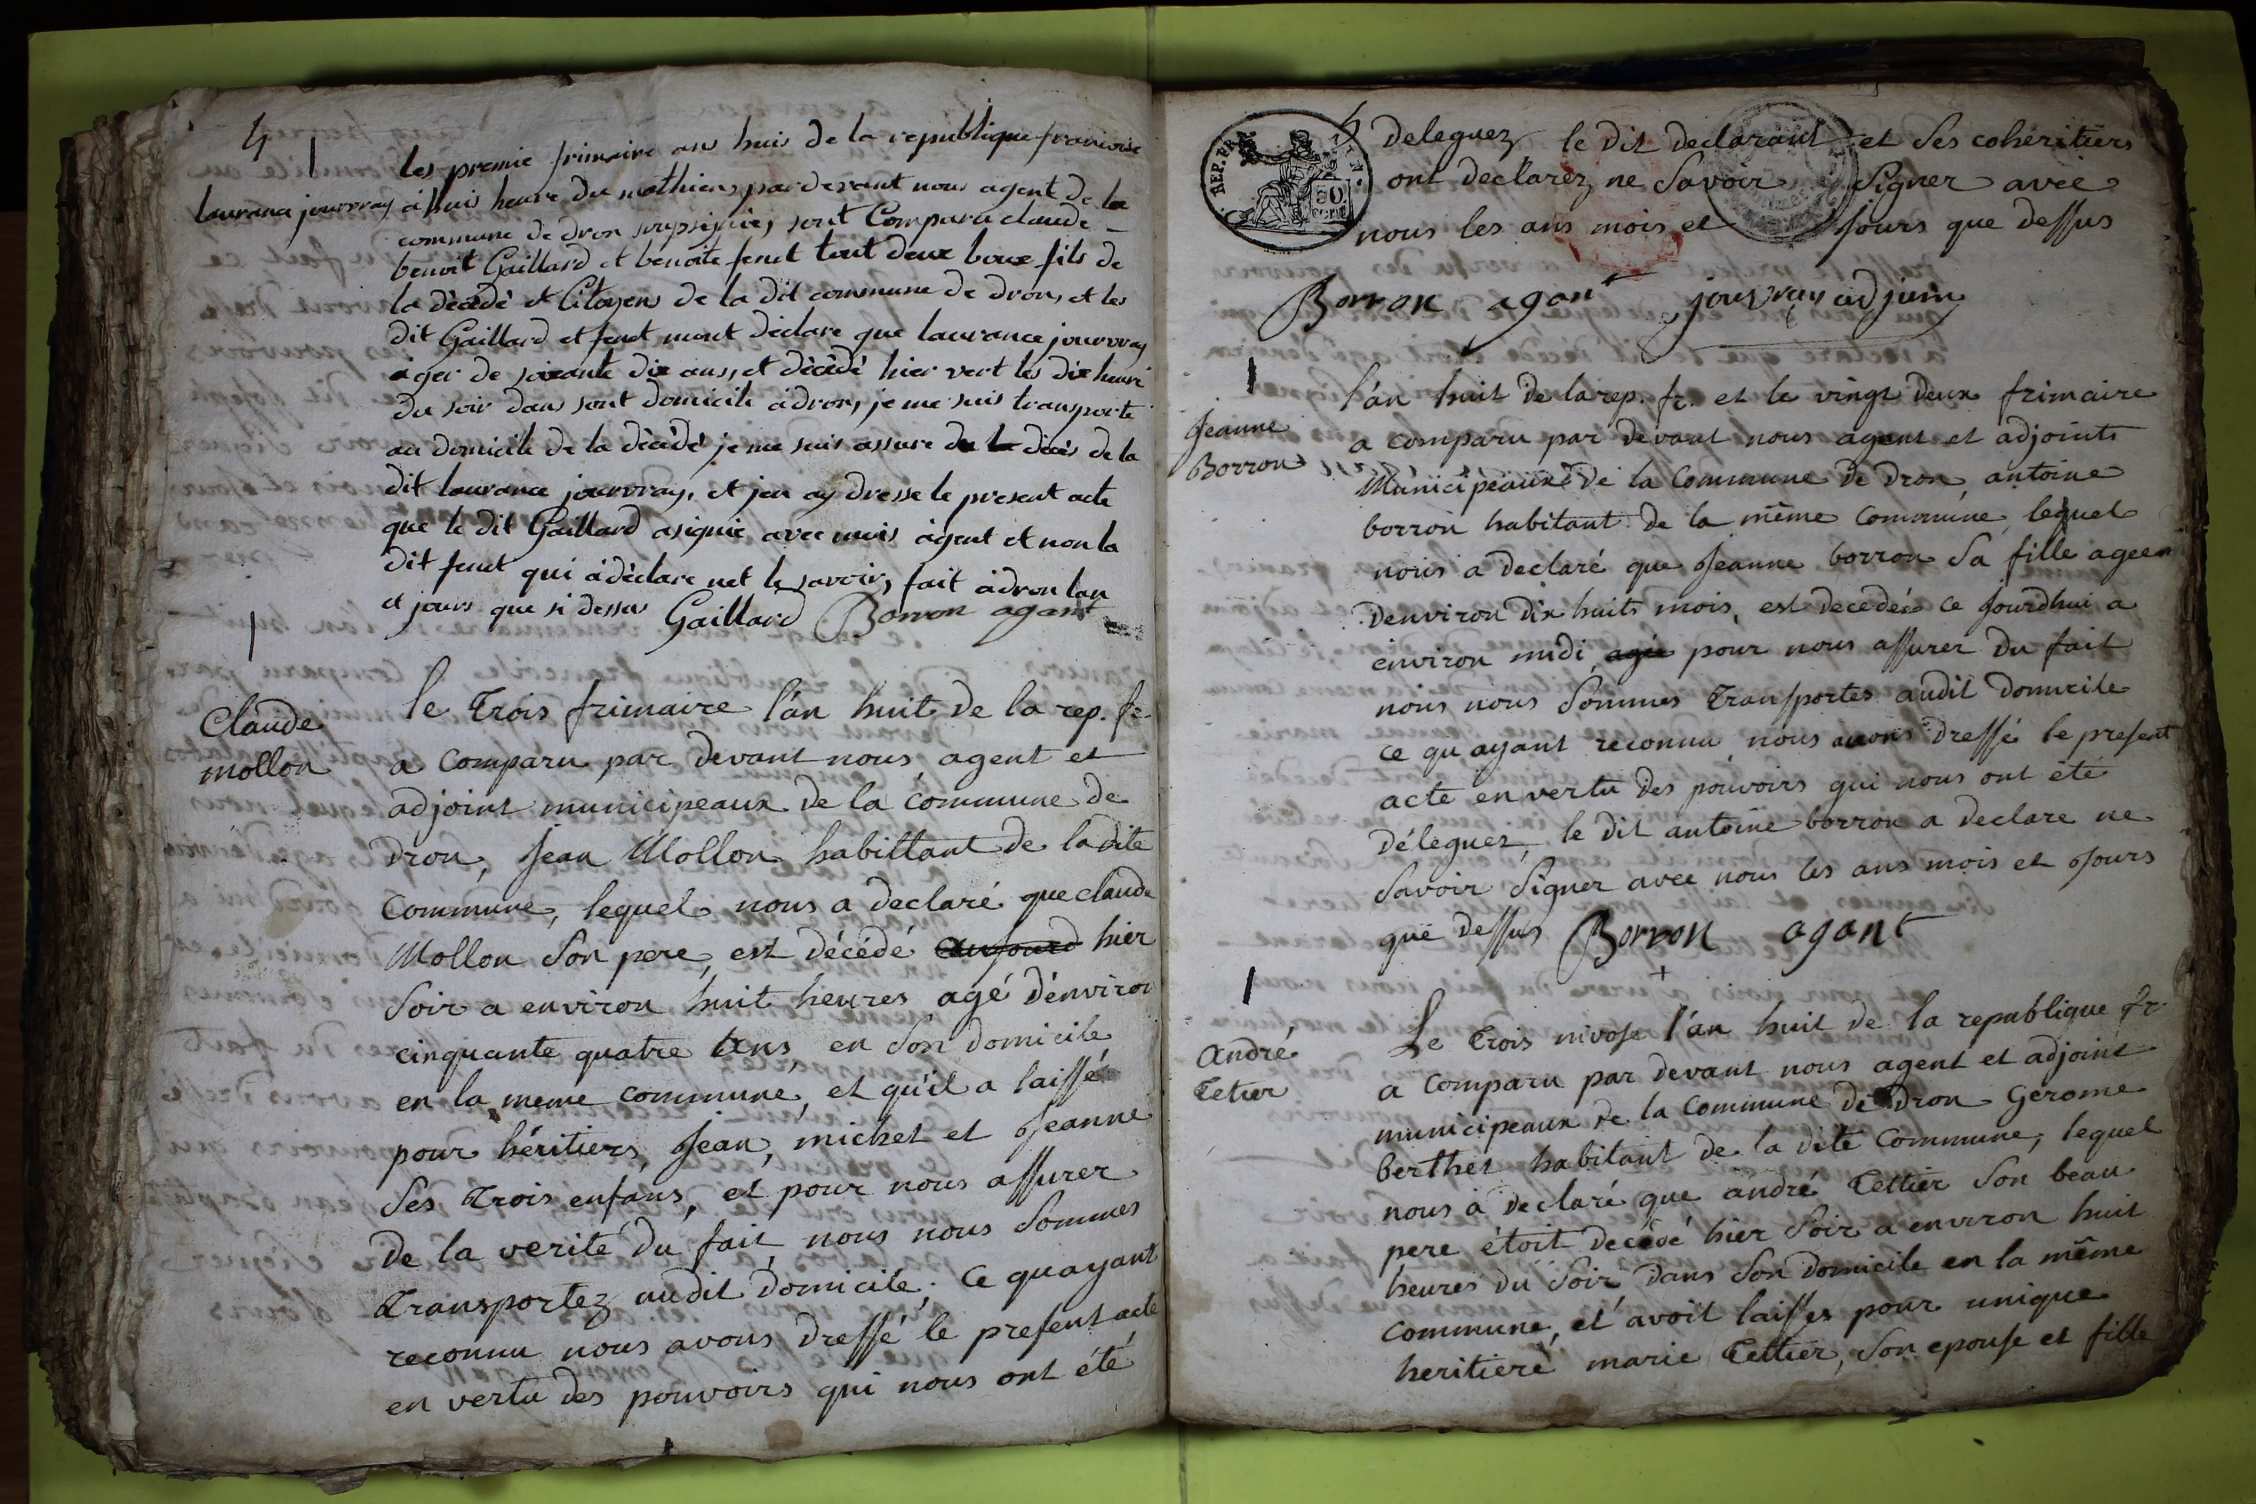 4
les premie frimaire ans huis de la republique francoise
laurance jourvray
à huis heure du mathiens pardevant nous agent de la
commune de dron soupsignié, sont Comparu claude
benoit Gaillard et benoite fenet tout deux boux fils de
la dècèdè et Citoyens de la dit commune de dron, et les
dit Gaillard et fenet mont dèclare que laurance jourvray
àger de soixante dix ans, et dècèdè hier vert les dix heure
du soir dans sont domicile àdron, je me suis transporte
au domicile de la dècèdè je me suis assure de la dècès de la
dit laurance jourvray, et jen ay dresse le present acte
que le dit Gaillard asignié avec mois àgent et non la
dit fenet qui àdèclare net le savoir, fait àdron lan
et jours que si dessus Gaillard Borron agant
Claude
mollon
le Trois frimaire l'án huit de la rep. fr.
a comparu par devant nous agent et
adjoint municipeaux de la commune de
dron, Jean Mollon habittant de ladite
Commune, lequel nous a declaré que claude
Mollon Son pere, est décédé aujourd hier
Soir a environ huit heures agé d'environ
cinquante quatre ans, en Son domicile
en la meme commune, et qu'il a laissé
pour héritiers, Jean, michel et Jeanne
Ses Trois enfans, et pour nous assurer
de la verité du fait, nous nous Sommes
Transportez audit domicile, Ce quayant
reconnu nous avons dressé le present acte
en vertu des pouvoirs qui nous ont été
5
REP. FRA
50
CENT
deleguez le dit declarant et Ses cohéritiers
ont declarez ne Savoir Signer avec
nous les ans mois et Jours que dessus
Borron agant jourvray adjuin
Jeanne
Borron
l'án huit de la rep. fr. et le vingt deux frimaire
a comparu par devant nous agent et adjoints
Municipeaux de la Commune de dron, antoine
borron habitant de la même Commune, lequel
nous a declaré que Jeanne borron Sa fille agee
denviron dix huits mois, est decedée ce Jourdhui a
environ midi, agée pour nous assurer du fait
nous nous Sommes Transportes audit domicile
ce qu ayant reconnu nous avons dressé le present
acte en vertu des pouvoirs qui nous ont été
déleguez, le dit antoine borron a declare ne
Savoir Signer avec nous les ans mois et Jours
que dessus Borron agant
André
Tetier
Le Trois nivose l'án huit de la republique fr.
a comparu par devant nous agent et adjoint
municipeaux de la Commune de dron Gerome
berthet habitant de la dite Commune, lequel
nous a declaré que andré Tettier Son beau
pere étoit decédé hier Soir a environ huit
heures du Soir dans Son domicile en la même
commune, et avoit laisses pour unique
heritiere marie Tettier, Son epouse et fille